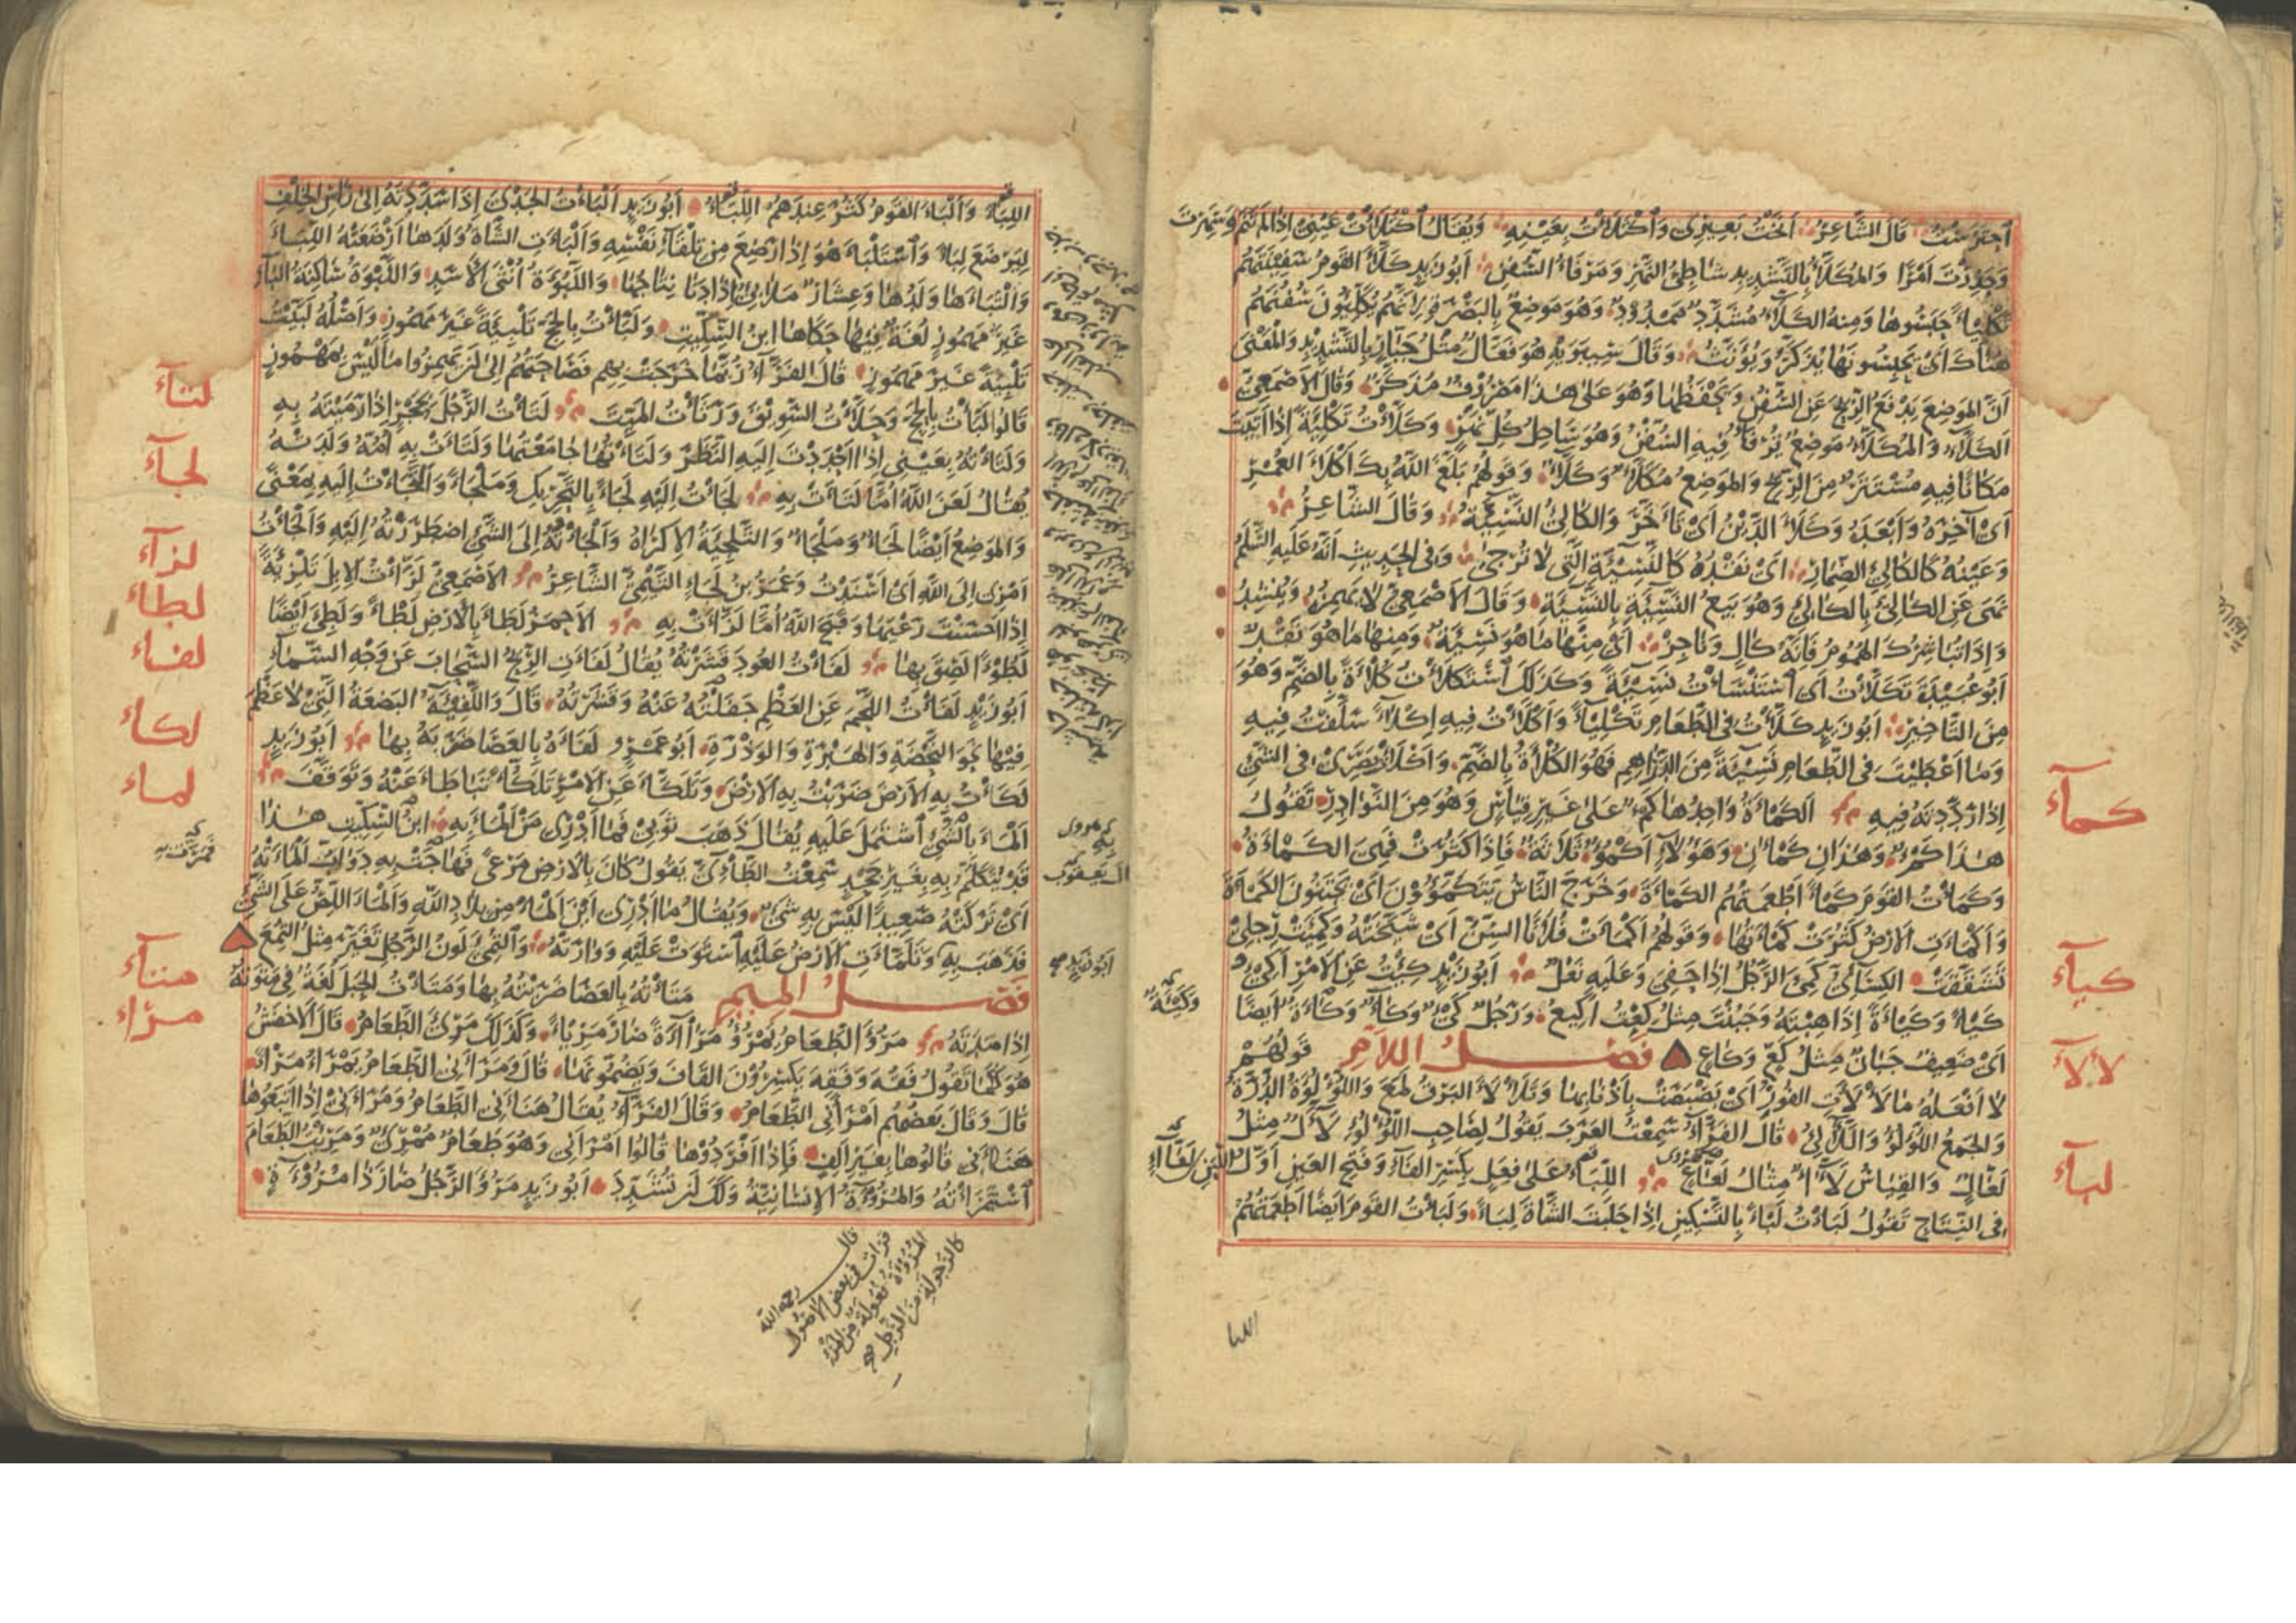 اَحْتَرَسْتُ قَالَ الشَّاعِرُ اَنَخْتُ بَعِيْرِى وَاكْتَلَاْتُ بِعَيْنِهِ وَيُقَالُ اكْتَلَاَتْ عَيْنِىْ اِذَا لَمْ تَنَمْ وَسَهِرَتْ
وَحَذِرَتْ اَمْرًا وَالمُكَلَّأُ بِالتَّشْدِيدِ شَاطِئُ النَّهْرِ وَمَرْفَأُ السُّفُنِ اَبُوزَيْدٍ كَلَّأَ القَوْمُ سَفِيْنَتَهُمْ
تَكْلِيْئًا حَبَسُوهَا وَمِنْهُ الكَلَّاءُ مُشَدَّدٌ مَمْدُوْدٌ وَهُوَ مَوْضِعٌ بِالبَصْرَةِ لِاَنَّهُمْ يُكَلِّئُونَ سُفُنَهُمْ
هُنَاكَ اَىْ يَحْبِسُونَهَا يُذَكَّرُ وَيُؤَنَّثُ وَقَالَ سِيبَوَيْهِ هُوَ فَعَّالٌ مِثْلُ جَبَّارٍ بِالتَّشْدِيْدِ وَالمَعْنَى
اَنَّ المَوْضِعَ يَدْفَعُ الرِّيْحَ عَنِ السُّفُنِ وَيَحْفَظُهَا وَهُوَ عَلَى هٰذَا مَصْرُوْفٌ مُذَكَّرٌ وَقَالَ الاَصْمَعِىُّ
الكَلَّاءُ وَالمُكَلَّأُ مَوْضِعٌ تُرْفَأُ فِيهِ السُّفُنُ وَهُوَ سَاحِلُ كُلِّ نَهْرٍ وَكَلَّأْتُ تَكْلِئَةً اِذَا اَتَيْتَ
مَكَانًا فِيهِ مُسْتَتَرٌ مِنَ الرِّيْحِ وَالمَوْضِعُ مُكَلَّأٌ وَكَلَّاءٌ وَقَوْلُهُمْ بَلَغَ اللهُ بِكَ اَكْلَأَ العُمُرِ
اَىْ آخِرَهُ وَاَبْعَدَهُ وَكَلَأَ الدَّيْنُ اَىْ تَأَخَّرَ وَالكَالِئُ النَّسِيْئَةُ وَقَالَ الشَّاعِرُ
وَعَيْنُهُ كَالكَالِئِ الضِّمَارِ اَىْ نَقْدُهُ كَالنَّسِيْئَةِ الَّتِى لَا تُرْجَى وَفِى الحَدِيْثِ اَنَّهُ عَلَيْهِ السَّلَمُ
نَهَى عَنِ الكَالِئِ بِالكَالِئِ وَهُوَ بَيْعُ النَّسِيْئَةِ بِالنَّسِيْئَةِ وَقَالَ الاَصْمَعِىُّ لَا يُهْمَزُ وَيُنْشِدُ
وَاِذَا تُبَاشِرُكَ الهُمُومُ فَاِنَّهُ كَالٍ وَنَاجِزْ اَىْ مِنْهَا مَا هُوَ نَسِيْئَةٌ وَمِنْهَا مَا هُوَ نَقْدٌ
اَبُو عُبَيْدَةَ تَكَلَّأْتُ اَىِ اسْتَنْسَأْتُ نَسِيْئَةً وَكَذٰلِكَ اسْتَكْلَأْتُ كُلْأَةً بِالضَّمِّ وَهُوَ
مِنَ التَّأْخِيْرِ اَبُوزَيْدٍ كَلَّأْتُ فِى الطَّعَامِ تَكْلِيْئًا وَاَكْلَأْتُ فِيهِ اِكْلَاءً سَلَّفْتُ فِيهِ
وَمَا اَعْطَيْتَ فِى الطَّعَامِ نَسِيْئَةً مِنَ الدَّرَاهِمِ فَهُوَ الكُلْأَةُ بِالضَّمِّ وَاَكْلَأْتُ بَصَرِىْ فِى الشَّىْءِ
اِذَا رَدَّدْتَهُ فِيهِ الكَمْأَةُ وَاحِدُهَا كَمْءٌ عَلَى غَيْرِ قِيَاسٍ وَهُوَ مِنَ النَّوَادِرِ تَقُولُ
هٰذَا كَمْءٌ وَهٰذَانِ كَمْآنِ وَهَؤُلَاءِ اَكْمُؤٌ ثَلَاثَةٌ فَاِذَا كَثُرَتْ فَهِىَ الكَمْأَةُ
وَكَمَأْتُ القَوْمَ كَمْأً اَطْعَمْتُهُمُ الكَمْأَةَ وَخَرَجَ النَّاسُ يَتَكَمَّؤُوْنَ اَىْ يَجْتَنُونَ الكَمْأَةَ
وَاَكْمَأَتِ الاَرْضُ كَثُرَتْ كَمْأَتُهَا وَقَوْلُهُمْ اَكْمَأَتْ فُلَانًا السِّنُّ اَىْ شَيَّخَتْهُ وَكَمِئَتْ رِجْلِىْ
تَشَقَّقَتْ الكِسَائِىُّ كَمِئَ الرَّجُلُ اِذَا حَفِىَ وَعَلَيْهِ نَعْلٌ اَبُوزَيْدٍ كِئْتُ عَنِ الاَمْرِ اَكِىْءُ
كَيْأً وَكَيْأَةً اِذَا هِبْتَهُ وَجَبُنْتَ مِثْلُ كِعْتُ اَكِيْعُ وَرَجُلٌ كَىْءٌ وَكَاءٌ وَكَاءَةٌ اَيْضًا
اَىْ ضَعِيفٌ جَبَانٌ مِثْلُ كَعٍّ وَكَاعٍ فَصْلُ اللَّامِ قَوْلُهُمْ
لَا اَفْعَلُهُ مَا لَأْلَأَتِ الفُوْرُ اَىْ بَصْبَصَتْ بِاَذْنَابِهَا وَتَلَأْلَأَ البَرْقُ لَمَعَ وَاللُّؤْلُؤَةُ الدُّرَّةُ
وَالجَمْعُ اللُّؤْلُؤُ وَالَّلآلِئُ قَالَ الفَرَّاءُ سَمِعْتُ العَرَبَ يَقُولُ لِصَاحِبِ اللُّؤْلُؤِ لَأَّالٌ مِثْلُ
لَعَّالٍ وَالقِيَاسُ لَأَّاءٌ مِثَالُ لَعَّاعٍ اللِّبَأُ عَلَى فِعَلٍ بِكَسْرِ الفَاءِ وَفَتْحِ العَيْنِ اَوَّلُ اللَّبَنِ
فِى النِّتَاجِ تَقُولُ لَبَأْتُ لَبْأً بِالتَّسْكِيْنِ اِذَا حَلَبْتَ الشَّاةَ لِبَأً وَلَبَأْتُ القَوْمَ اَيْضًا اَطْعَمْتُهُمُ
كمأ
كيأ
لألأ
لبأ
اللبا
اللِّبَأَ وَاَلْبَأَ القَوْمُ كَثُرَ عِنْدَهُمُ اللِّبَأُ اَبُوزَيْدٍ اَلْبَأْتُ الجَدْىَ اِذَا شَدَدْتَهُ اِلَى رَأْسِ الخِلْفِ
لِيَرْضَعَ لِبَأً وَاسْتَلْبَأَ هُوَ اِذَا رَضِعَ مِنْ تِلْقَاءِ نَفْسِهِ وَاَلْبَأَتِ الشَّاةُ وَلَدَهَا اَرْضَعَتْهُ اللِّبَأَ
وَالْتَبَأَهَا وَلَدُهَا وَعِشَارٌ مَلَابِئُ اِذَا دَنَا نِتَاجُهَا وَاللَّبُؤَةُ اُنْثَى الاَسَدِ وَاللَّبْوَةُ سَاكِنَةُ البَاءِ
غَيْرَ مَهْمُوزٍ لُغَةٌ فِيهَا حَكَاهَا ابْنُ السِّكِّيْتِ وَلَبَّأْتُ بِالحَجِّ تَلْبِئَةً غَيْرَ مَهْمُوزٍ وَاَصْلُهُ لَبَّيْتُ
تَلْبِيَةً غَيْرَ مَهْمُوزٍ قَالَ الفَرَّاءُ رُبَّمَا خَرَجَتْ بِهِمْ فَصَاحَتُهُمْ اِلَى اَنْ يَهْمِزُوا مَا لَيْسَ بِمَهْمُوزٍ
قَالُوا لَبَّأْتُ بِالحَجِّ وَحَلَّأْتُ السَّوِيْقَ وَرَثَأْتُ المَيِّتَ لَتَأْتُ الرَّجُلَ بِحَجَرٍ اِذَا رَمَيْتَهُ بِهِ
وَلَتَأْتُهُ بِعَيْنِى اِذَا اَحْدَدْتَ اِلَيْهِ النَّظَرَ وَلَتَأْتُهَا جَامَعْتُهَا وَلَتَأَتْ بِهِ اُمُّهُ وَلَدَتْهُ
يُقَالُ لَعَنَ اللهُ اُمًّا لَتَأَتْ بِهِ لَجَأْتُ اِلَيْهِ لَجَأً بِالتَّحْرِيكِ وَمَلْجَأً وَالْتَجَأْتُ اِلَيْهِ بِمَعْنًى
وَالمَوْضِعُ اَيْضًا لَجَأٌ وَمَلْجَأٌ وَالتَّلْجِئَةُ الاِكْرَاهُ وَاَلْجَأْتُهُ اِلَى الشَّىْءِ اضْطَرَرْتُهُ اِلَيْهِ وَاَلْجَأْتُ
اَمْرِى اِلَى اللهِ اَىْ اَسْنَدْتُ وَعُمَرُ بْنُ لَجَأٍ التَّيْمِىُّ الشَّاعِرُ الاَصْمَعِىُّ لَزَّأْتُ الاِبِلَ تَلْزِئَةً
اِذَا اَحْسَنْتَ رَعْيَهَا وَقَبَّحَ اللهُ اُمًّا لَزَأَتْ بِهِ الاَحْمَرُ لَطَأَ بِالاَرْضِ لَطْأً وَلَطِئَ اَيْضًا
لُطُوْءًا لَصِقَ بِهَا لَفَأْتُ العُودَ قَشَرْتُهُ يُقَالُ لَفَأَتِ الرِّيْحُ السَّحَابَ عَنْ وَجْهِ السَّمَاءِ
اَبُوزَيْدٍ لَفَأْتُ اللَّحْمَ عَنِ العَظْمِ جَفَلْتُهُ عَنْهُ وَقَشَرْتُهُ قَالَ وَاللَّفِيْئَةُ البَضْعَةُ الَّتِىْ لَا عَظْمَ
فِيْهَا نَحْوَ النَّحْضَةِ وَالهَبْرَةِ وَالوَذْرَةِ اَبُوعَمْرٍو لَفَأَهُ بِالعَصَا ضَرَبَهُ بِهَا اَبُوزَيْدٍ
لَكَأْتُ بِهِ الاَرْضَ ضَرَبْتُ بِهِ الاَرْضَ وَتَلَكَّأَ عَنِ الاَمْرِ تَلَكُّأً تَبَاطَأَ عَنْهُ وَتَوَقَّفَ
اَلْمَأَ بِالشَّىْءِ اشْتَمَلَ عَلَيْهِ يُقَالُ ذَهَبَ ثَوْبِىْ فَمَا اَدْرِى مَنْ اَلْمَأَ بِهِ ابْنُ السِّكِّيْتِ هٰذَا
قَدْ يُتَكَلَّمُ بِهِ بِغَيْرِ جَحْدٍ سَمِعْتُ الطَّائِىَّ يَقُولُ كَانَ بِالاَرْضِ مَرْعًى فَهَاجَتْ بِهِ دَوَابُّ اَلْمَأَتْهُ
اَىْ تَرَكَتْهُ صَعِيدًا لَيْسَ بِهِ شَىْءٌ وَيُقَالُ مَا اَدْرِى اَيْنَ اَلْمَأَ مِنْ بِلَادِ اللهِ وَاَلْمَأَ اللِّصُّ عَلَى الشَّىْءِ
فَذَهَبَ بِهِ وَتَلَمَّأَتِ الاَرْضُ عَلَيْهِ اسْتَوَتْ عَلَيْهِ وَوَارَتْهُ وَالْتُمِئَ لَوْنُ الرَّجُلِ تَغَيَّرَ مِثْلُ الْتُمِعَ
فَصْلُ المِيمِ مَتَأْتُهُ بِالعَصَا ضَرَبْتُهُ بِهَا وَمَتَأْتُ الحَبْلَ لُغَةٌ فِى مَتَوْتُهُ
اِذَا مَدَدْتَهُ مَرُؤَ الطَّعَامُ يَمْرُؤُ مَرَاءَةً صَارَ مَرِيْئًا وَكَذٰلِكَ مَرِئَ الطَّعَامُ قَالَ الاَخْفَشُ
هُوَ كَمَا تَقُولُ فَقُهَ وَفَقِهَ يَكْسِرُوْنَ القَافَ وَيَضُمُّونَهَا قَالَ وَمَرَأَنِى الطَّعَامُ يَمْرَأُ مَرْأً
قَالَ وَقَالَ بَعْضُهُمْ اَمْرَأَنِى الطَّعَامُ وَقَالَ الفَرَّاءُ يُقَالُ هَنَأَنِى الطَّعَامُ وَمَرَأَنِىْ اِذَا اتَّبَعُوهَا
هَنَأَنِى قَالُوهَا بِغَيْرِ اَلِفٍ فَاِذَا اَفْرَدُوْهَا قَالُوا اَمْرَأَنِى وَهُوَ طَعَامٌ مُمْرِئٌ وَمَرِئْتُ الطَّعَامَ
اسْتَمْرَأْتُهُ وَالمُرُوْءَةُ الاِنْسَانِيَّةُ وَلَكَ اَنْ تُشَدِّدَ اَبُوزَيْدٍ مَرُؤَ الرَّجُلُ صَارَ ذَا مُرُوْءَةٍ
لتأ
لجأ
لزأ
لطأ
لفأ
لكأ
لمأ
متأ
مرأ
قال رحمه الله
قرات فى بعض الاصول
المروءة فعولة من المرء
كالرجولة من الرجل